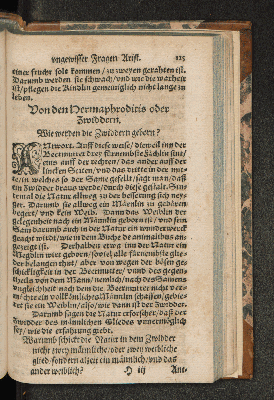 ungewisser Fragen Arist. 115
einer frucht solt kommen / zu zweyen gerahten ist.
Darumb werden sie schwach / und wie die warheit
ist / pflegen die Kindlin gemeiniglich nicht lange zu
leben.
Von den Hermaphroditis oder
Zwiddern.
Wie werden die Zwidern geborn?
ANtwort. Auff diese weise / dieweil inn der
Beermutter drey fürnembste Fächlin sint /
eins auff der rechten / das ander auff der
lincken Seiten / und das dritte in der mit-
te / in welches so der Same gefellt / sagt man / daß
ein Zwidder draus werde / durch diese gestalt. Sin-
temal die Natur allweg zu der besserung sich ney-
get. Darumb sie allweg ein Männlin zu gebären
begert / und kein Weib. Dann das Weib der
Gelegenheit nach ein Mannlin geborn ist / und sein
Darumb auch in der Natur ein wunderwerck
geacht wirdt / wie in dem Buche de animalibus an-
gezeigt ist. Derhalben etwa inn der Natur ein
Megdlin wirt geborn / soviel alle fürnembste glie-
der belangen thut / aber von wegen der bösen ge-
schickligkeit in der Beermutter / unnd des gegen-
theils von dem Mann / nemlich / nach des Samens
ungleicheit nach dem die Beermutter nicht ver-
ein vollkömlichs Männlin schaffen / gebie-
ret sie ein Weiblin / also / wie dann ist der Zwidder.
Darumb sagen die Natur erforscher / daß der
Zwidder des männlichen Gliedes unvermöglich
sey / wie die erfahrung gibt.
Warumb schickt die Natur in dem Zwidder
nicht zwey männliche / oder zwey weibliche
glied / sondern allzeit ein männlich / und das
ander weiblich? H iij Ant-